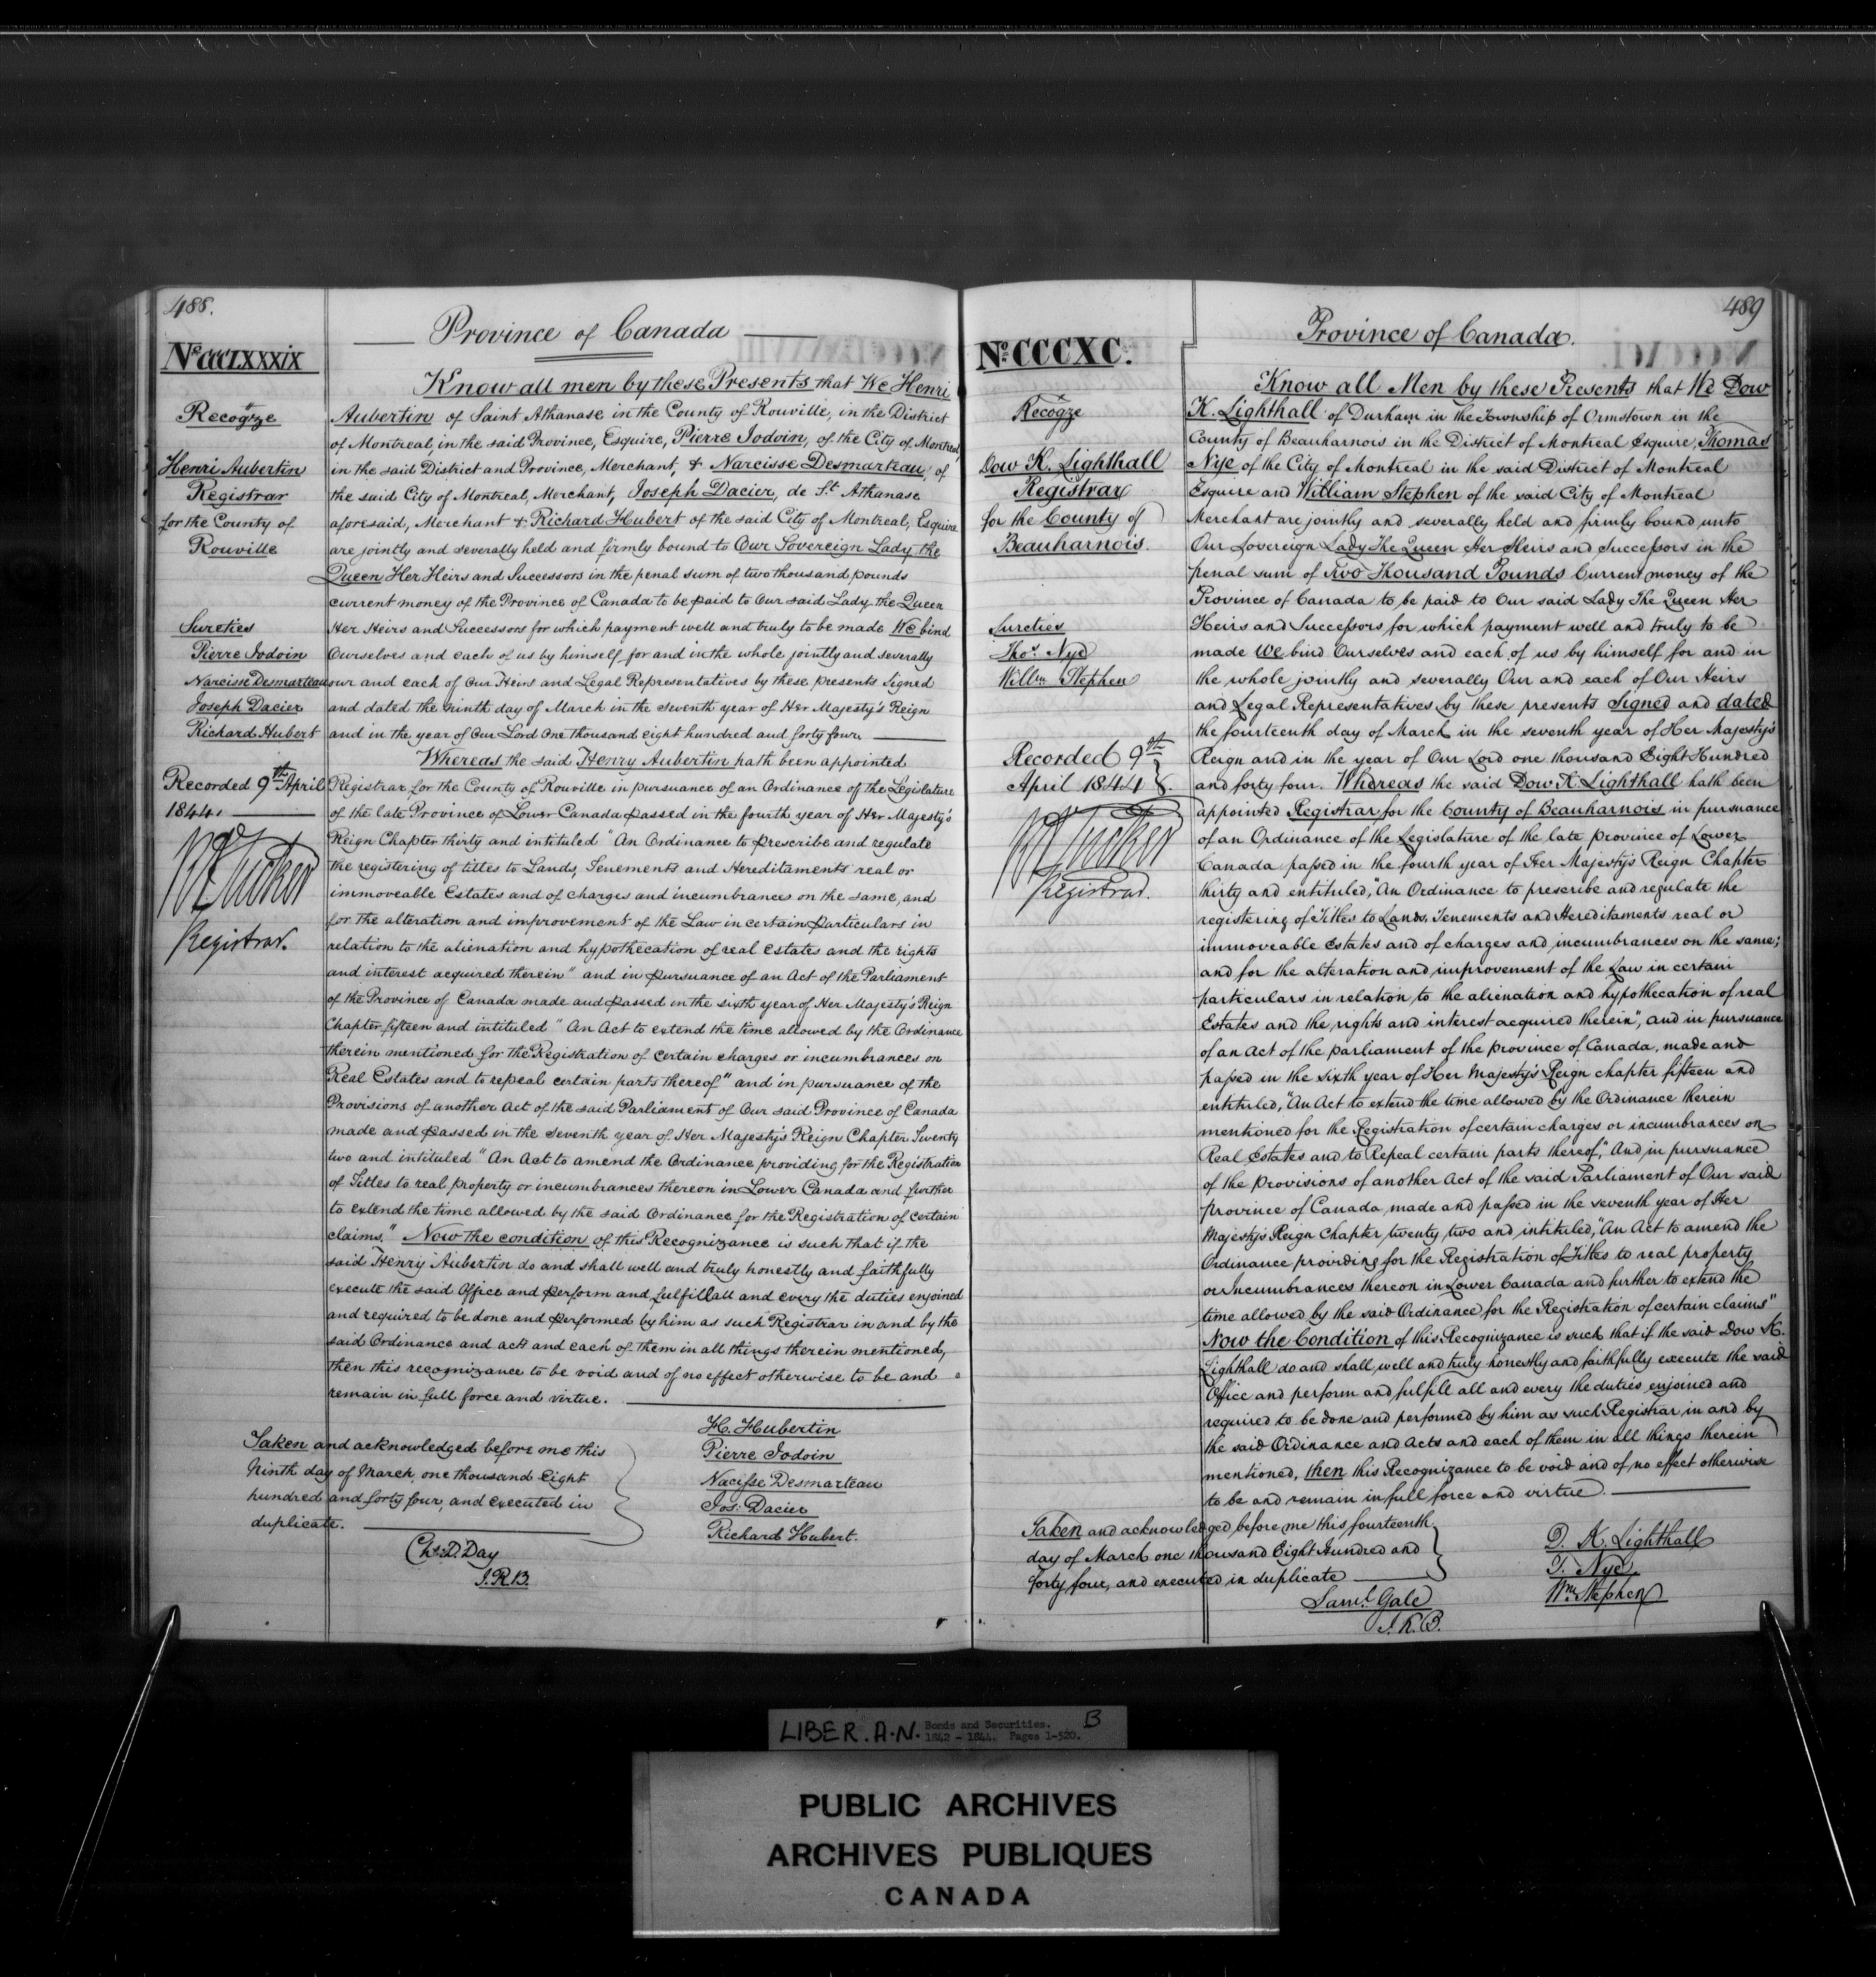 488.
Nº CCCLXXXIX
Recogze
Henri Aubertin
Registrar
for the County of
Rouville
Sureties
Pierre Jodoin
Narcisse Desmarteau
Joseph Dacier
Richard Hubert
Recorded 9th April
1844.
RA Tucker
Registrar.
Province of Canada
Know all men by these Presents that We Henri
Aubertin of Saint Athanase in the County of Rouville, in the District
of Montreal, in the said Province, Esquire, Pierre Jodoin, of the City of Montreal,
in the said District and Province, Merchant, & Narcisse Desmarteau, of
the said City of Montreal, Merchant, Joseph Dacier, de St. Athanase
aforesaid, Merchant & Richard Hubert of the said City of Montreal, Esquire
are jointly and severally held and firmly bound to Our Sovereign Lady the
Queen Her Heirs and Successors in the penal sum of two thousand pounds
current money of the Province of Canada to be paid to Our said Lady the Queen
Her Heirs and Successors for which payment well and truly to be made We bind
Ourselves and each of us by himself for and in the whole jointly and severally
our and each of Our Heirs and Legal Representatives by these presents Signed
and dated the ninth day of March in the seventh year of Her Majesty's Reign
and in the year of Our Lord One thousand eight hundred and forty four.
Whereas the said Henry Aubertin hath been appointed
Registrar for the County of Rouville in pursuance of an Ordinance of the Legislature
of the late Province of Lower Canada passed in the fourth year of Her Majesty's
Reign Chapter thirty and intituled "An Ordinance to prescribe and regulate
the registering of titles to Lands, Tenements and Hereditaments real or
immoveable Estates and of charges and incumbrances on the same, and
for the alteration and improvement of the Law in certain Particulars in
relation to the alienation and hypothecation of real estates and the rights
and interest acquired therein" and in pursuance of an Act of the Parliament
of the Province of Canada made and passed in the sixth year of Her Majesty's Reign
Chapter fifteen and intituled "An Act to extend the time allowed by the Ordinance
therein mentioned for the Registration of certain charges or incumbrances on
Real Estates and to repeal certain parts thereof" and in pursuance of the
Provisions of another act of the said Parliament of Our said Province of Canada
made and passed in the seventh year of Her Majesty's Reign Chapter Twenty
two and intituled "An Act to amend the Ordinance providing for the Registration
of Titles to real property or incumbrances thereon in Lower Canada and further
to extend the time allowed by the said Ordinance for the Registration of certain
claims." Now the condition of this Recognizance is such that if the
said Henry Aubertin do and shall well and truly honestly and faithfully
execute the said Office and perform and fulfill all and every the duties enjoined
and required to be done and performed by him as such Registrar in and by the
said Ordinance and acts and each of them in all things therein mentioned,
then this recognizance to be void and of no effect otherwise to be and
remain in full force and virtue.
Taken and acknowledged before me this
Ninth day of March, one thousand Eight
hundred and forty four, and executed in
duplicate.
Chs. D. Day
J.K.B.
H. Hubertin
Pierre Jodoin
Nacisse Desmarteau
Jos: Dacier
Richard Hubert.
489
Nº CCCXC.
Recogze
Dow K. Lighthall
Registrar
for the County of
Beauharnois.
Sureties
Thos. Nye
Willm Stephen
Recorded 9th
April 1844.
RA Tucker
Registrar.
Province of Canada.
Know all Men by these Presents that We Dow
K. Lighthall of Durham in the Township of Ormstown in the
County of Beauharnois in the District of Montreal Esquire, Thomas
Nye of the City of Montreal in the said District of Montreal
Esquire and William Stephen of the said City of Montreal
Merchant are jointly and severally held and firmly bound unto
Our Sovereign Lady The Queen Her Heirs and Successors in the
penal sum of Two Thousand Pounds Current money of the
Province of Canada to be paid to Our said Lady The Queen Her
Heirs and Successors for which payment well and truly to be
made We bind Ourselves and each of us by himself for and in
the whole jointly and severally Our and each of Our Heirs
and Legal Representatives by these presents Signed and dated
the fourteenth day of March in the seventh year of Her Majesty's
Reign and in the year of Our Lord one thousand Eight Hundred
and forty four. Whereas the said Dow K. Lighthall hath been
appointed Registrar for the County of Beauharnois in pursuance
of an Ordinance of the Legislature of the late province of Lower
Canada passed in the fourth year of Her Majesty's Reign Chapter
thirty and entituled, "An Ordinance to prescribe and regulate the
registering of Titles to Lands, Tenements and Hereditaments real or
immoveable Estates and of charges and incumbrances on the same;
and for the alteration and improvement of the Law in certain
particulars in relation to the alienation and hypothecation of real
Estates and the rights and interest acquired therein", and in pursuance
of an Act of the parliament of the province of Canada, made and
passed in the sixth year of Her Majesty's Reign chapter fifteen and
entituled, "An Act to extend the time allowed by the Ordinance therein
mentioned for the Registration of certain charges or incumbrances on
Real Estates and to Repeal certain parts thereof," And in pursuance
of the provisions of another Act of the said Parliament of Our said
province of Canada, made and passed in the seventh year of Her
Majesty's Reign Chapter twenty two and intituled, "An Act to amend the
Ordinance providing for the Registration of Titles to real property
or Incumbrances thereon in Lower Canada and further to extend the
time allowed by the said Ordinance for the Registration of certain claims"
Now the Condition of this Recognizance is such that if the said Dow K.
Lighthall do and shall well and truly honestly and faithfully execute the said
Office and perform and fulfill all and every the duties enjoined and
required to be done and performed by him as such Registrar in and by
the said Ordinance and Acts and each of them in all things therein
mentioned, then this Recognizance to be void and of no effect otherwise
to be and remain in full force and virtue.
Taken and acknowledged before me this fourteenth
day of March one thousand Eight Hundred and
forty four, and executed in duplicate
Saml. Gale
J.K.B.
D. K. Lighthall
T. Nye.
Wm. Stephen
LIBER. A.N. Bonds and Securities. B
1842 - 1844. Pages 1-520.
PUBLIC ARCHIVES
ARCHIVES PUBLIQUES
CANADA